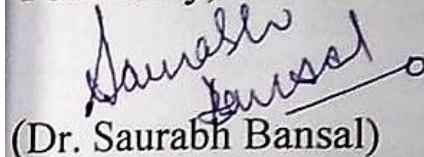 Saurabh
Bansal
(Dr. Saurabh Bansal)